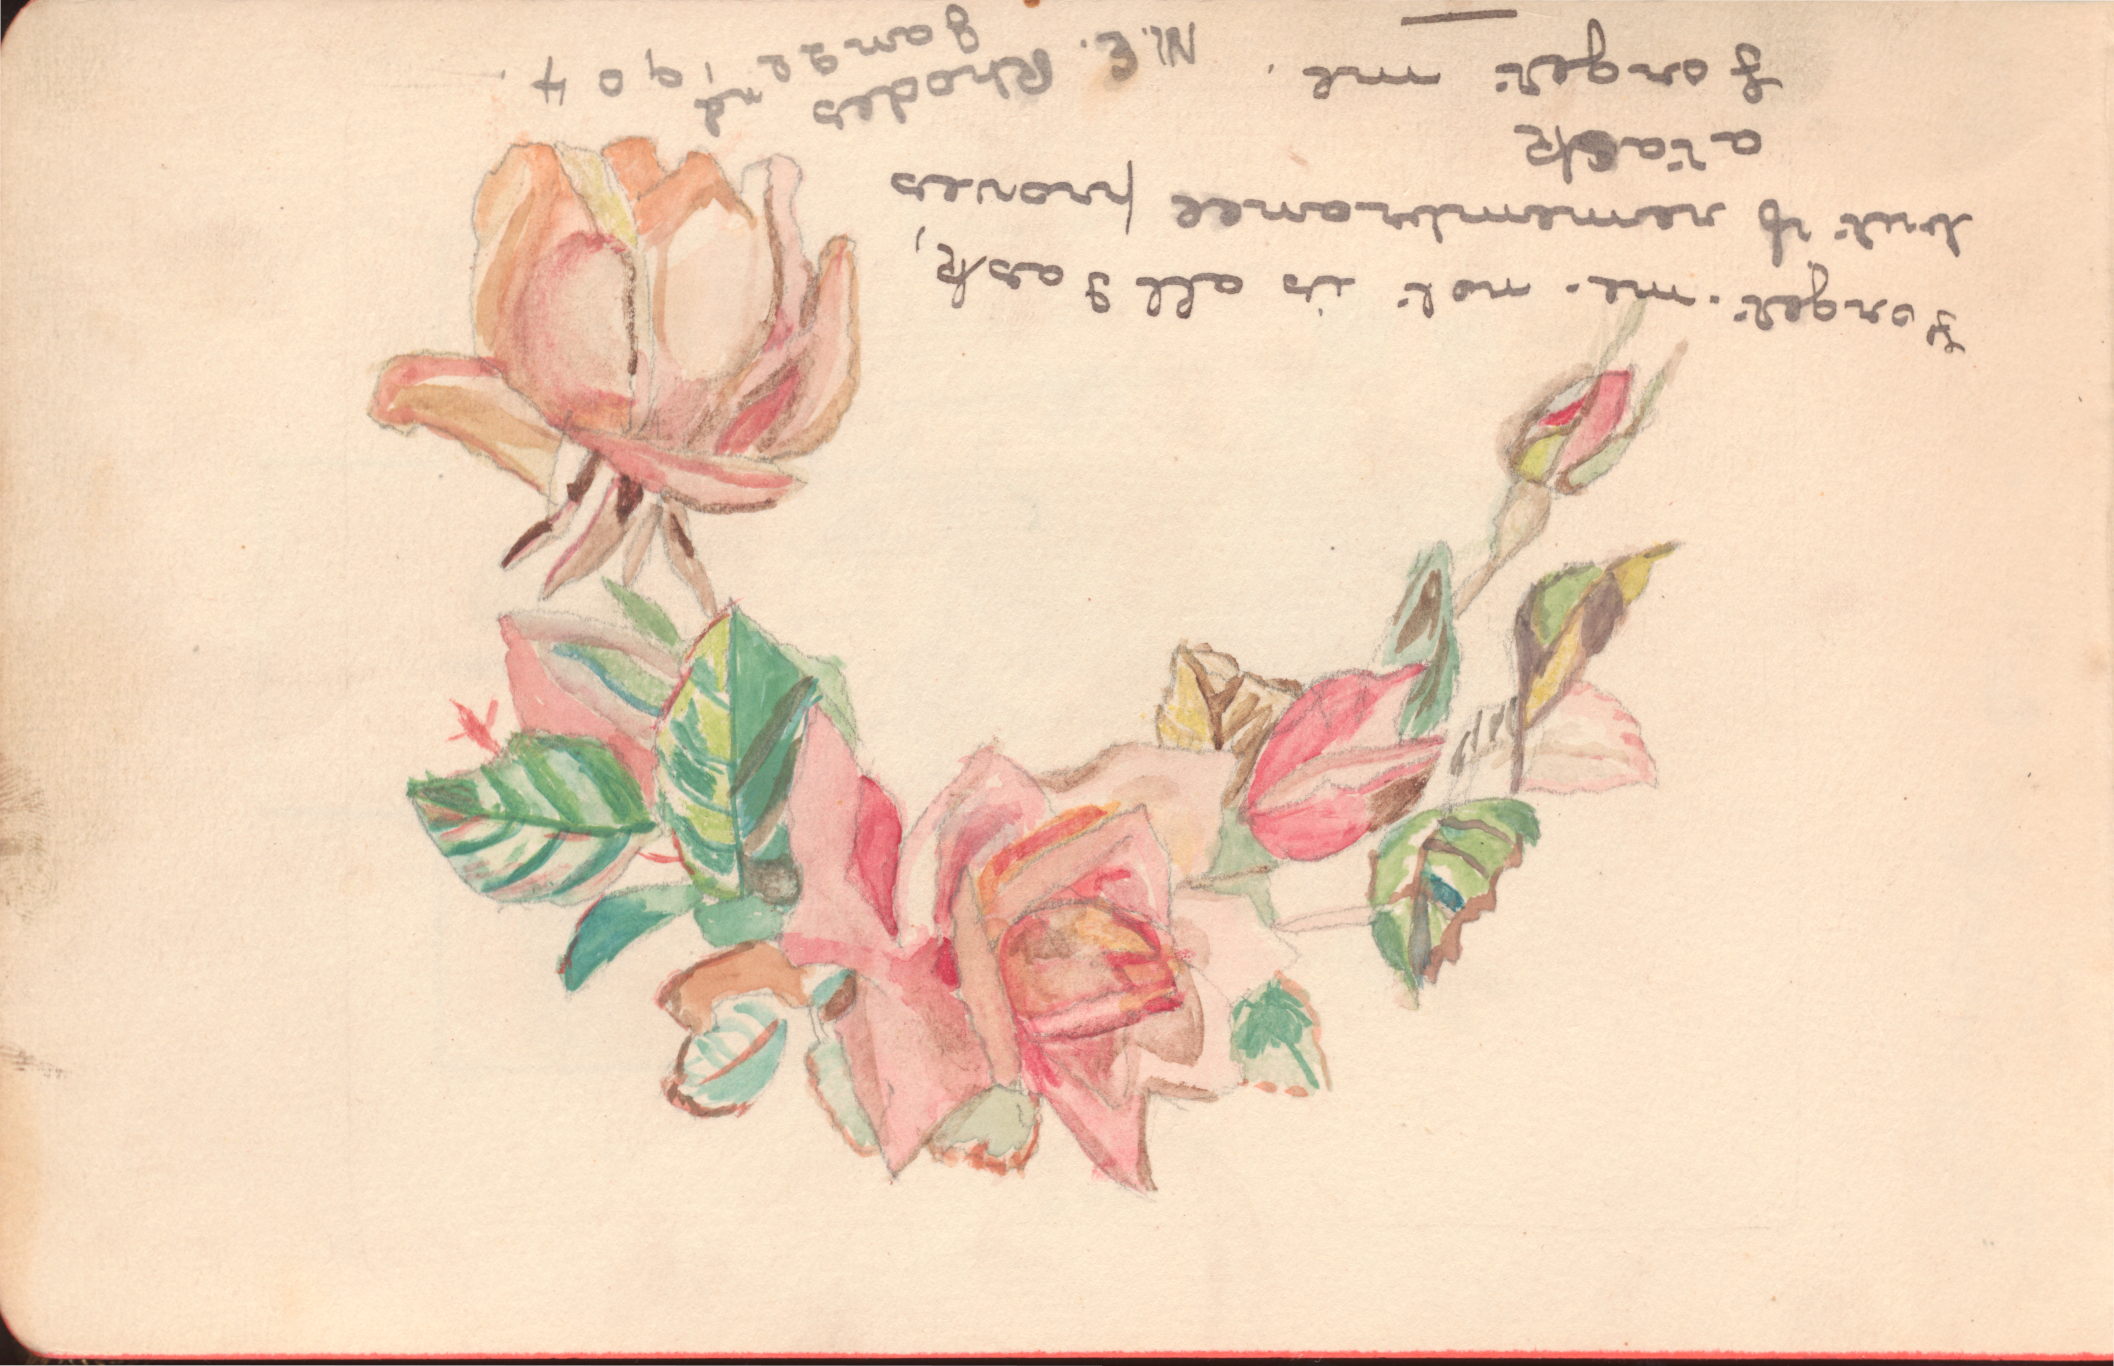 Forget-me-not is all I ask,
but if remembrance proves
a task
Forget me.
M.E. Rhodes
Jan 22nd 1904.